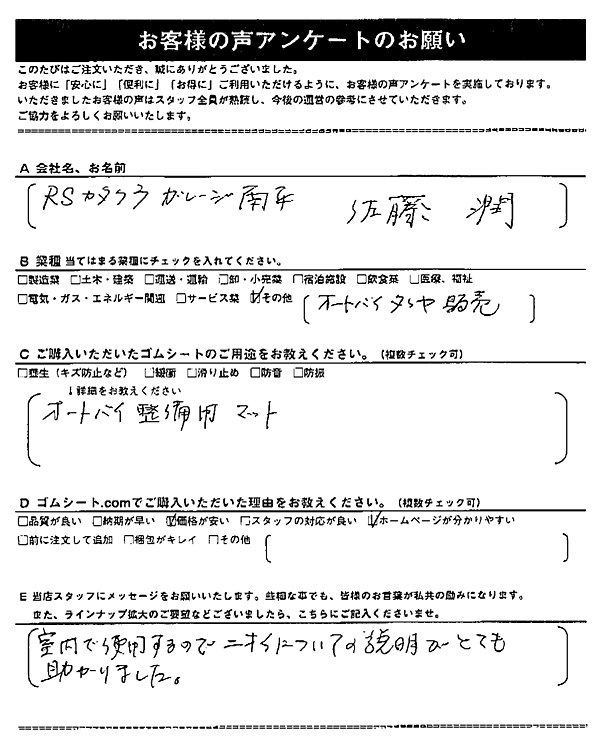 お客様の声アンケートのお願い
このたびはご注文いただき、誠にありがとうございました。
お客様に「安心に」「便利に」「お得に」ご利用いただけるように、お客様の声アンケートを実施しております。
いただきましたお客様の声はスタッフ全員が熟読し、今後の運営の参考にさせていただきます。
ご協力をよろしくお願いいたします。
A 会社名、お名前
RSカタクラ ガレージ南平 佐藤 潤
B 業種 当てはまる業種にチェックを入れてください。
□製造業 □土木・建築 □運送・運輸 □卸・小売業 □宿泊施設 □飲食業 □医療、福祉
□電気・ガス・エネルギー関連 □サービス業 ☑その他 オートバイタイヤ販売
C ご購入いただいたゴムシートのご用途をお教えください。(複数チェック可)
□養生(キズ防止など) □緩衝 □滑り止め □防音 □防振
↓詳細をお教えください
オートバイ整備用マット
D ゴムシート.comでご購入いただいた理由をお教えください。(複数チェック可)
□品質が良い □納期が早い ☑価格が安い □スタッフの対応が良い ☑ホームページが分かりやすい
□前に注文して追加 □梱包がキレイ □その他
E 当店スタッフにメッセージをお願いいたします。些細な事でも、皆様のお言葉が私共の励みになります。
また、ラインナップ拡大のご要望などございましたら、こちらにご記入くださいませ。
室内で使用するのでニオイについての説明がとても
助かりました。